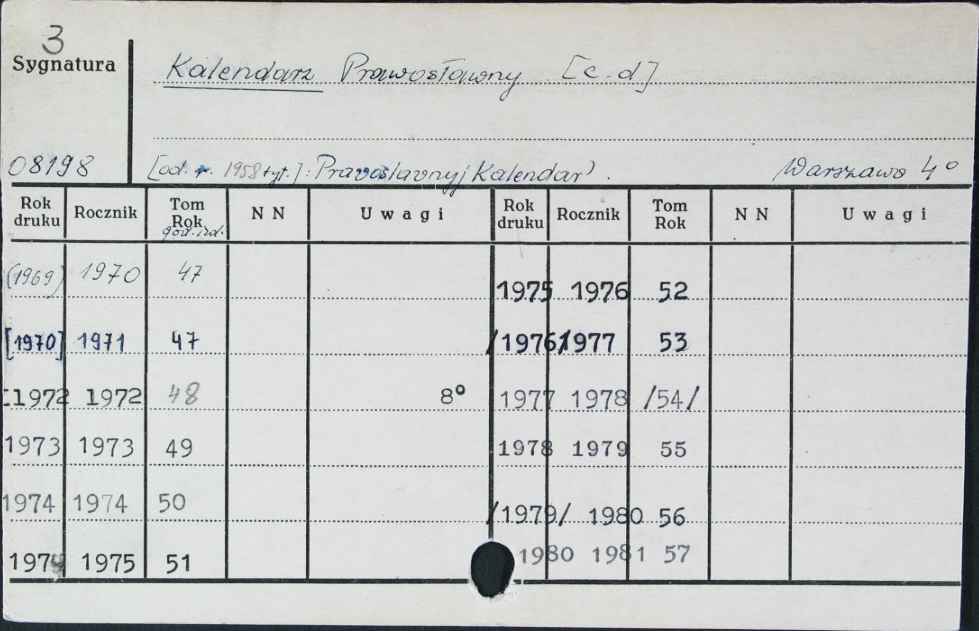 3
Sygnatura
Kalendarz Prawosławny [c.d]
08198 [od r. 1958 tyt.]: Pravoslavnyj Kalendar). Warszawa 4°
Rok druku Rocznik Tom Rok NN Uwagi Rok druku Rocznik Tom Rok NN Uwagi
(1969] 1970 47
1975 1976 52
[1970] 1971 47
/1976/ 1977 53
[1972 1972 48 8°
1977 1978 /54/
1973 1973 49
1978 1979 55
1974 1974 50
/1979/ 1980 56
1975 51
1980 1981 57